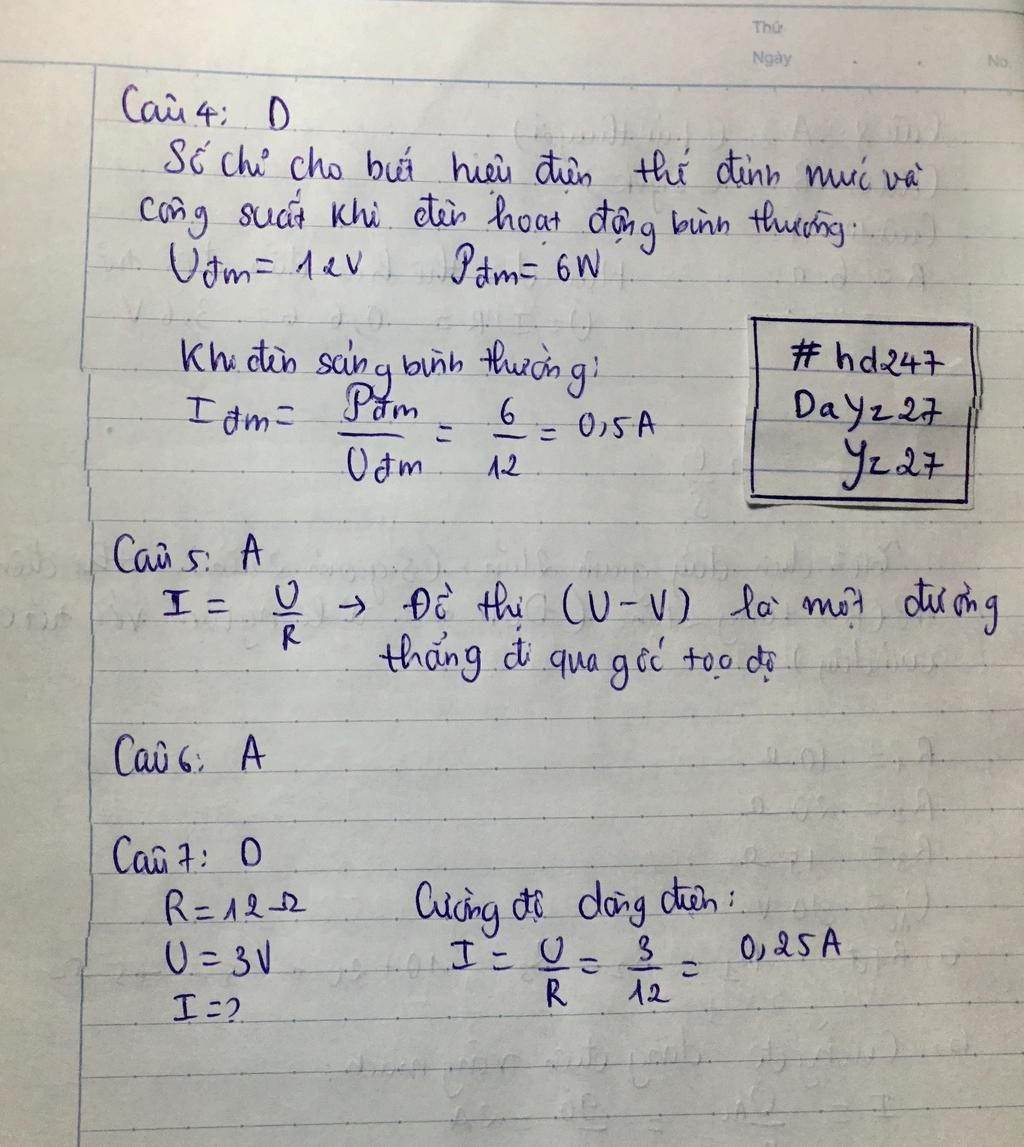 Thứ
Ngày
No.
Câu 4: D
Số chỉ cho biết hiệu điện thế định mức và
công suất khi đèn hoạt động bình thường.
Uđm = 12V Pđm = 6W
Khi đèn sáng bình thường:
Iđm = Pđm / Uđm = 6 / 12 = 0,5A
# hd247
DaYz27
Yz27
Câu 5: A
I = U / R → Đồ thị (U-V) là một đường
thẳng đi qua gốc tọa độ
Câu 6: A
Câu 7: D
R = 12Ω Cường độ dòng điện:
U = 3V I = U / R = 3 / 12 = 0,25A
I = ?